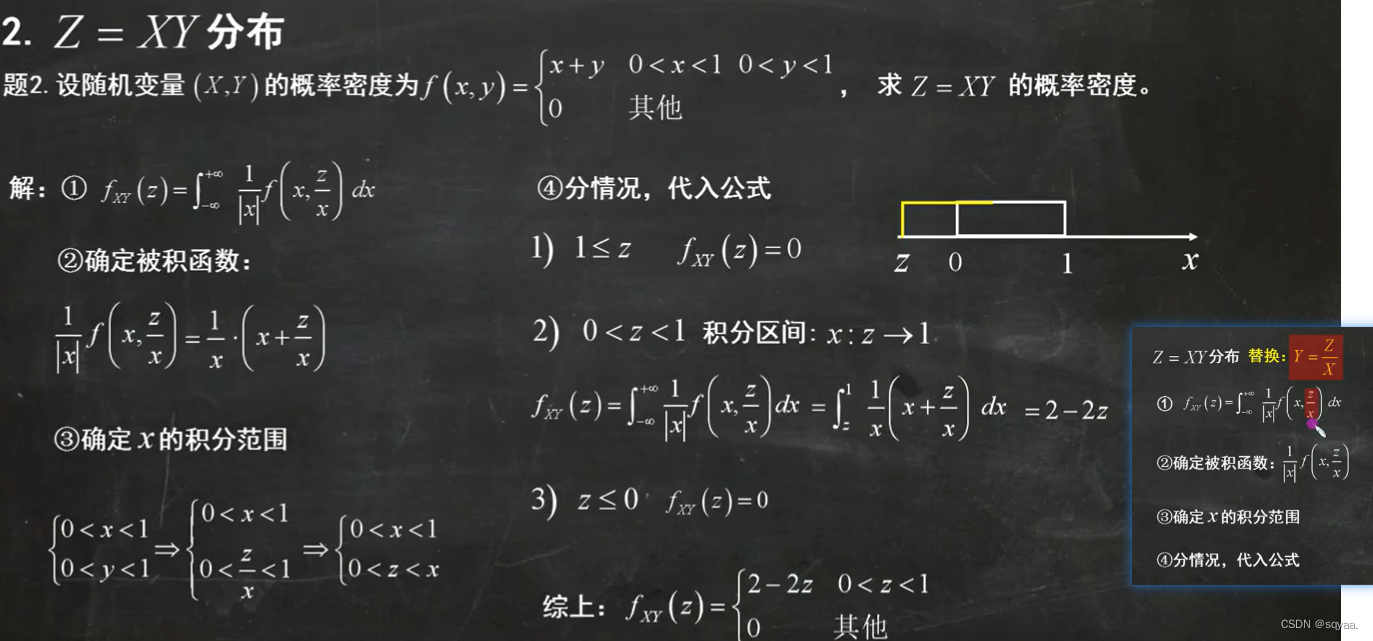 2. Z = XY 分布
题2. 设随机变量 (X,Y) 的概率密度为 f(x,y) = { x+y 0<x<1 0<y<1 ， 求 Z = XY 的概率密度。
0 其他
解：① f_XY(z) = ∫_{-∞}^{+∞} 1/|x| f(x, z/x) dx
②确定被积函数：
1/|x| f(x, z/x) = 1/x · (x + z/x)
③确定 x 的积分范围
{ 0<x<1 ⇒ { 0<x<1 ⇒ { 0<x<1
0<y<1 0< z/x <1 0<z<x
④分情况，代入公式
1) 1 ≤ z f_XY(z) = 0
z 0 1 x
2) 0<z<1 积分区间: x : z → 1
f_XY(z) = ∫_{-∞}^{+∞} 1/|x| f(x, z/x) dx = ∫_z^1 1/x (x + z/x) dx = 2 − 2z
3) z ≤ 0 f_XY(z) = 0
综上： f_XY(z) = { 2 − 2z 0<z<1
0 其他
Z = XY 分布 替换： Y = Z/X
① f_XY(z) = ∫_{-∞}^{+∞} 1/|x| f(x, z/x) dx
②确定被积函数： 1/|x| f(x, z/x)
③确定 x 的积分范围
④分情况，代入公式
CSDN @sqyaa.